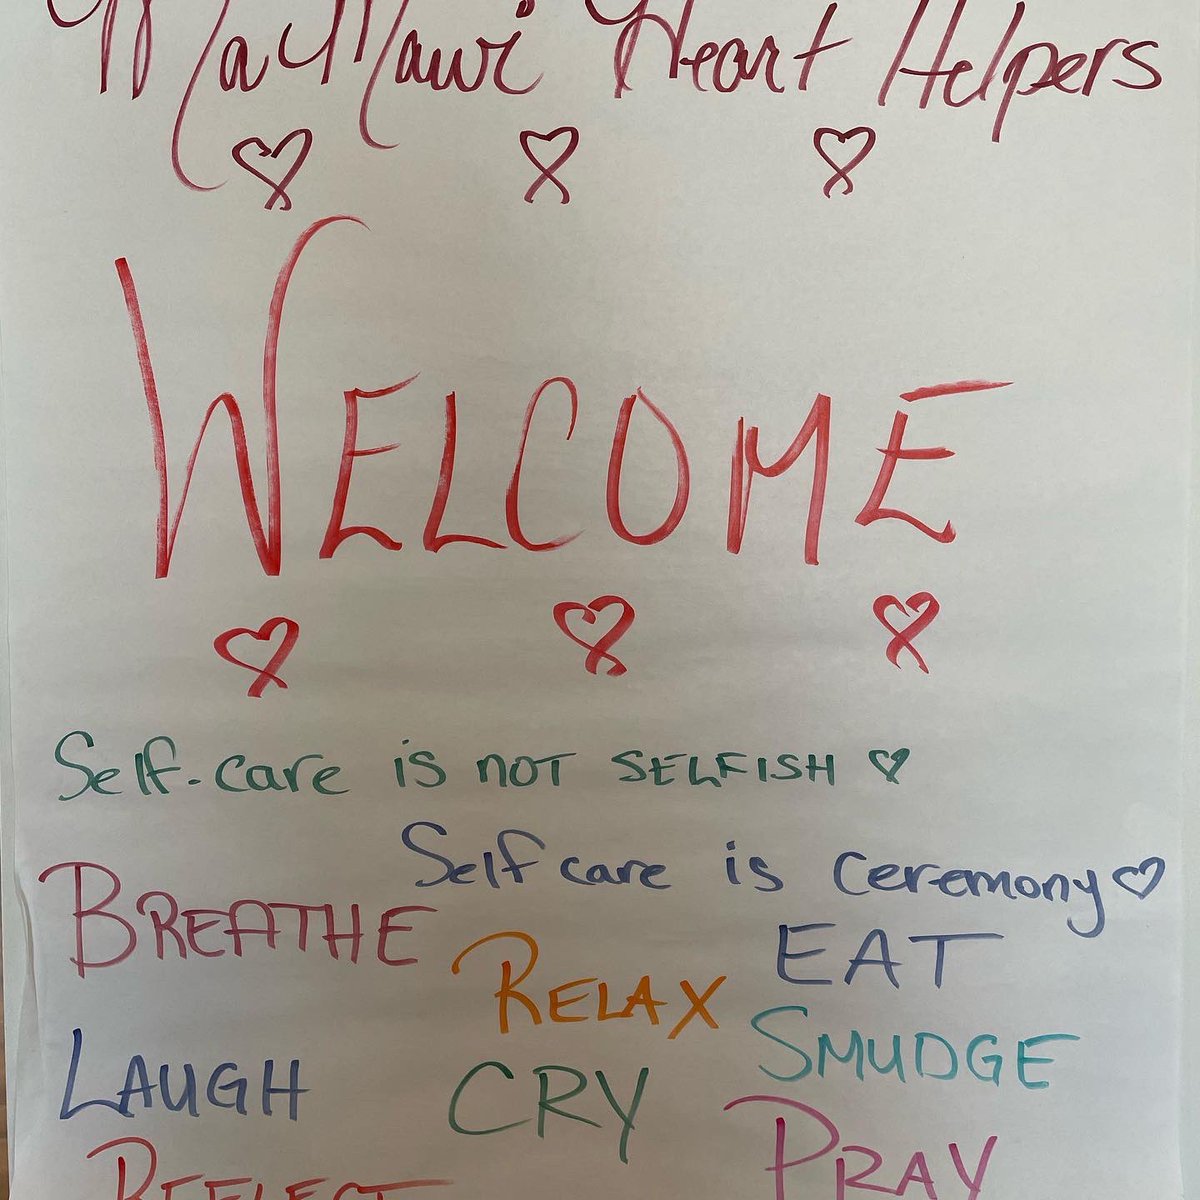 Ma Mawi Heart Helpers
WELCOME
Self-care is not SELFISH
Self care is ceremony
BREATHE
RELAX
EAT
LAUGH
CRY
SMUDGE
REFLECT
PRAY